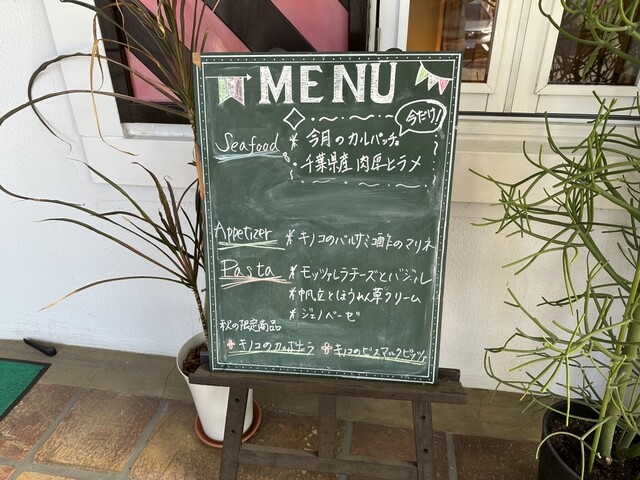 MENU
今だけ!
Seafood * 今月のカルパッチョ
千葉県産 肉厚ヒラメ
Appetizer * キノコのバルサミコ酢のマリネ
Pasta * モッツァレラチーズとバジル
* 帆立とほうれん草クリーム
* ジェノベーゼ
秋の限定商品
キノコのカルボナーラ キノコのビスマルクピッツァ